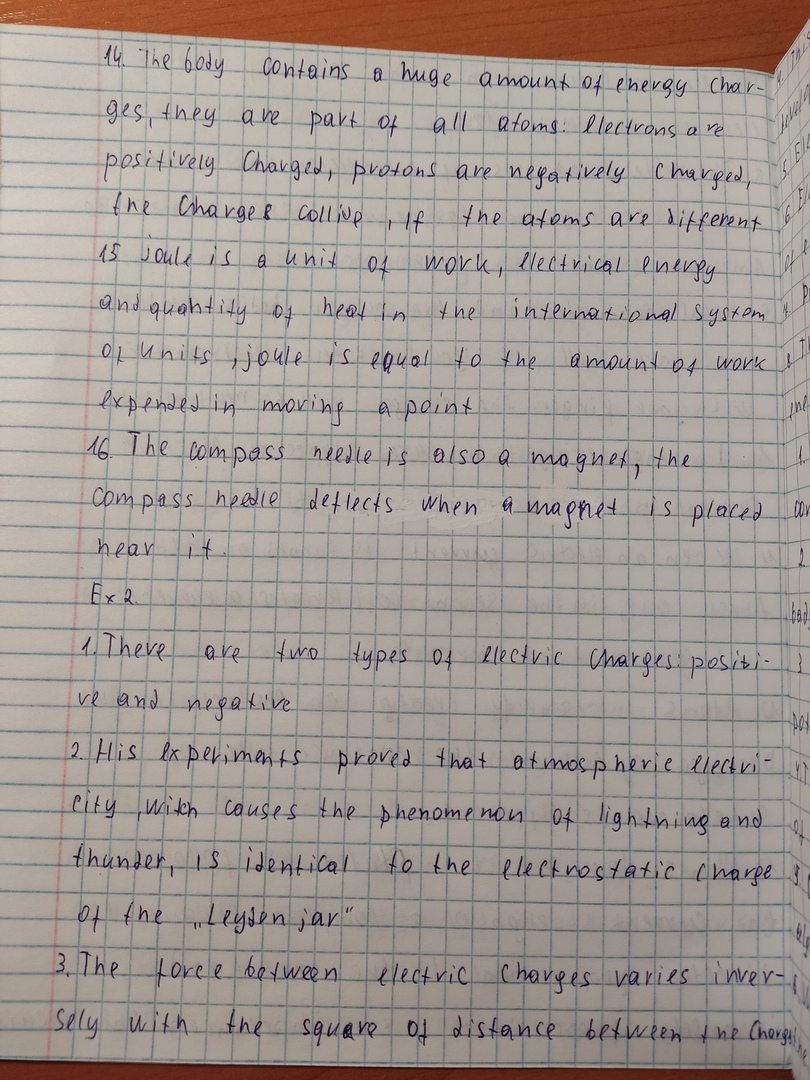 14. The body contains a huge amount of energy char-
ges, they are part of all atoms: electrons are
positively charged, protons are negatively charged,
the charges collide, if the atoms are different
15 joule is a unit of work, electrical energy
and quantity of heat in the international system
of units, joule is equal to the amount of work
expended in moving a point
16. The compass needle is also a magnet, the
compass needle deflects when a magnet is placed
near it.
Ex 2.
1. There are two types of electric charges: positi-
ve and negative
2. His experiments proved that atmospheric electri-
city, witch causes the phenomenon of lightning and
thunder, is identical to the electrostatic charge
of the „Leyden jar"
3. The force between electric charges varies inver-
sely with the square of distance between the charges